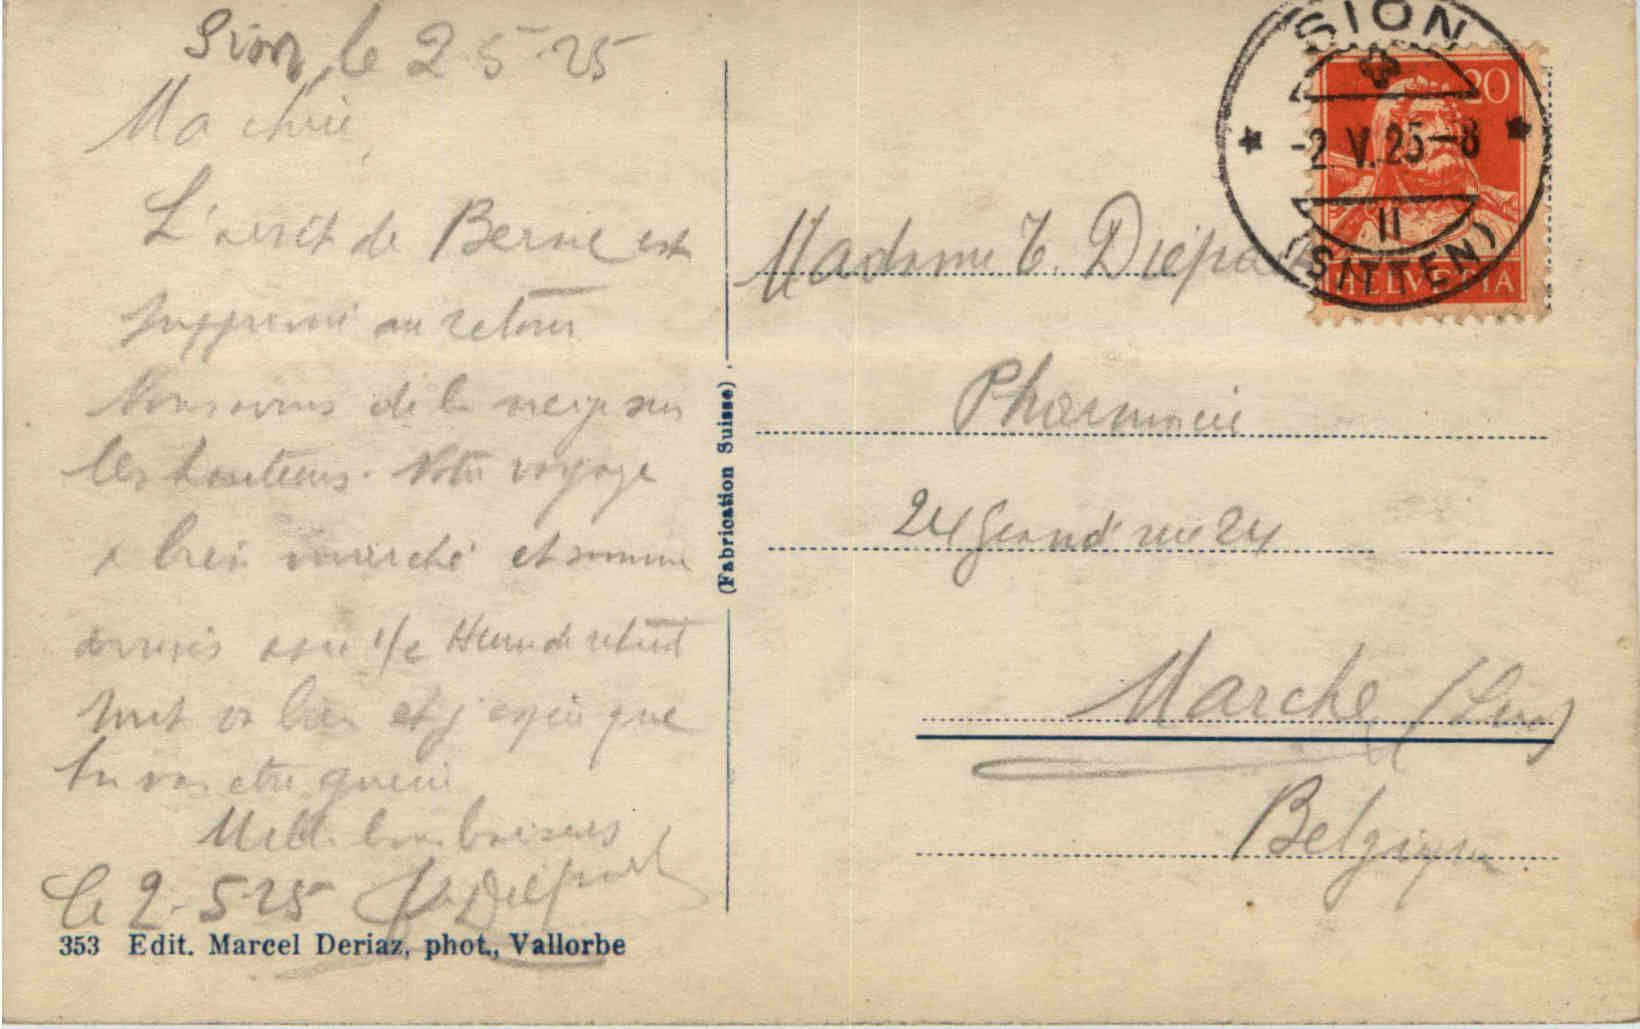 Sion le 2-5-25
Ma chérie
L'arrêt de Berne est
supprimé au retour
Nous avons de la neige sur
les hauteurs. Notre voyage
a bien marché et sommes
arrivés avec 1/2 Heure de retard
tout va bien et j'espère que
tu vas être guérie
Mille bons baisers
le 2-5-25
353 Edit. Marcel Deriaz, phot., Vallorbe
(Fabrication Suisse).
SION
-2.V.25-8
II
(SITTEN)
20
HELVETIA
Madame
Pharmacie
24 Grand'rue 24
Marche (Lux)
Belgique